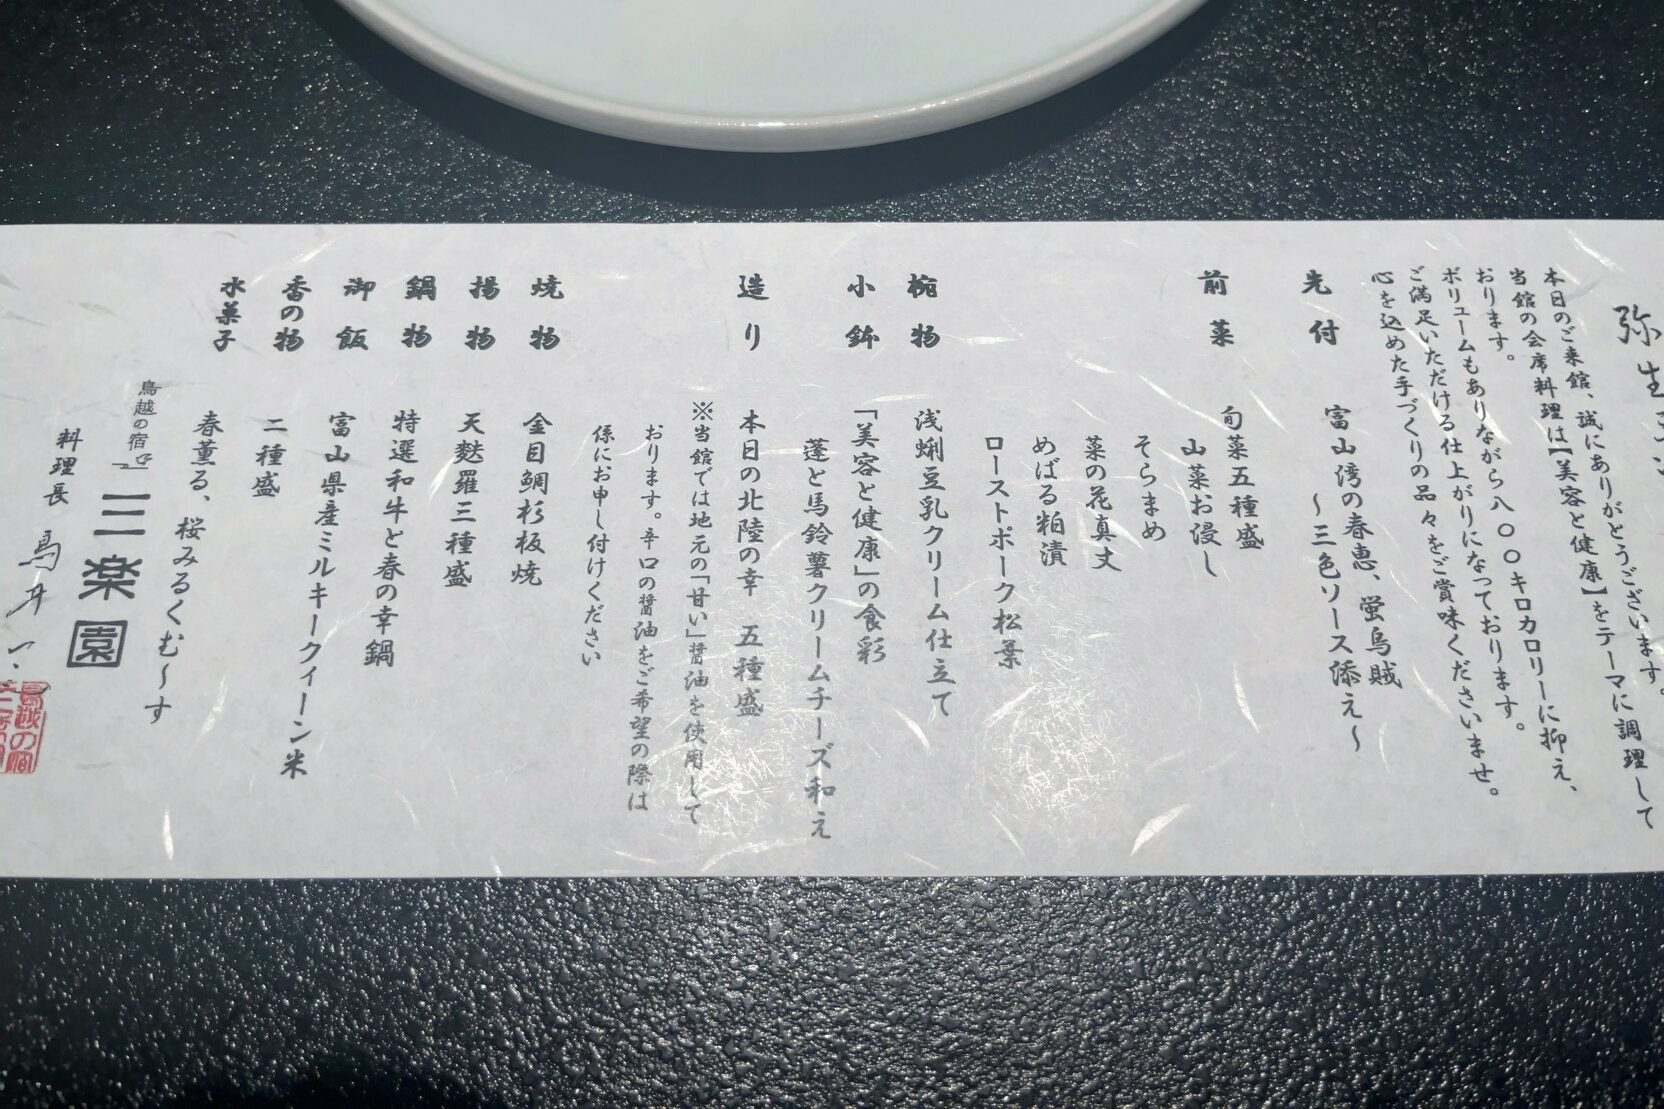 弥生
本日のご来館、誠にありがとうございます。
当館の会席料理は【美容と健康】をテーマに調理して
おります。
ボリュームもありながら八〇〇キロカロリーに抑え、
ご満足いただける仕上がりになっております。
心を込めた手づくりの品々をご賞味くださいませ。
先付 富山湾の春恵、蛍烏賊
～三色ソース添え～
前菜 旬菜五種盛
山菜お浸し
そらまめ
菜の花真丈
めばる粕漬
ローストポーク松葉
椀物 浅蜊豆乳クリーム仕立て
小鉢 「美容と健康」の食彩
蓬と馬鈴薯クリームチーズ和え
造り 本日の北陸の幸 五種盛
※当館では地元の「甘い」醤油を使用して
おります。辛口の醤油をご希望の際は
係にお申し付けください
焼物 金目鯛杉板焼
揚物 天麩羅三種盛
鍋物 特選和牛と春の幸鍋
御飯 富山県産ミルキークィーン米
香の物 二種盛
水菓子 春薫る、桜みるくむ～す
鳥越の宿
三楽園
料理長
鳥越の宿